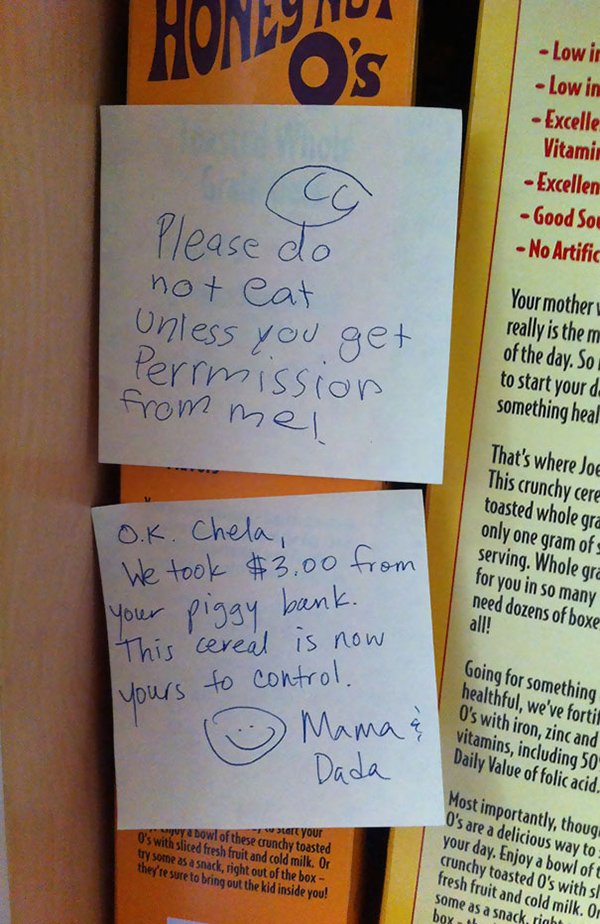 HONEY NUT
O's
Toasted Whole
Grain
CC
Please do
not eat
Unless you get
Perrmission
from me!
O.K. Chela,
We took $3.00 from
your piggy bank.
This cereal is now
yours to control.
Mama &
Dada
start your
Enjoy a bowl of these crunchy toasted
O's with sliced fresh fruit and cold milk. Or
try some as a snack, right out of the box –
they're sure to bring out the kid inside you!
- Low in
- Low in
- Excelle
Vitamin
- Excellen
- Good Sou
- No Artific
Your mother
really is the m
of the day. So
to start your d
something heal
That's where Joe
This crunchy cere
toasted whole gra
only one gram of s
serving. Whole gra
for you in so many
need dozens of boxe
all!
Going for something
healthful, we've fortif
O's with iron, zinc and
vitamins, including 50
Daily Value of folic acid.
Most importantly, though
O's are a delicious way to
your day. Enjoy a bowl of t
crunchy toasted O's with sl
fresh fruit and cold milk. Or
some as a snack, right
box – th